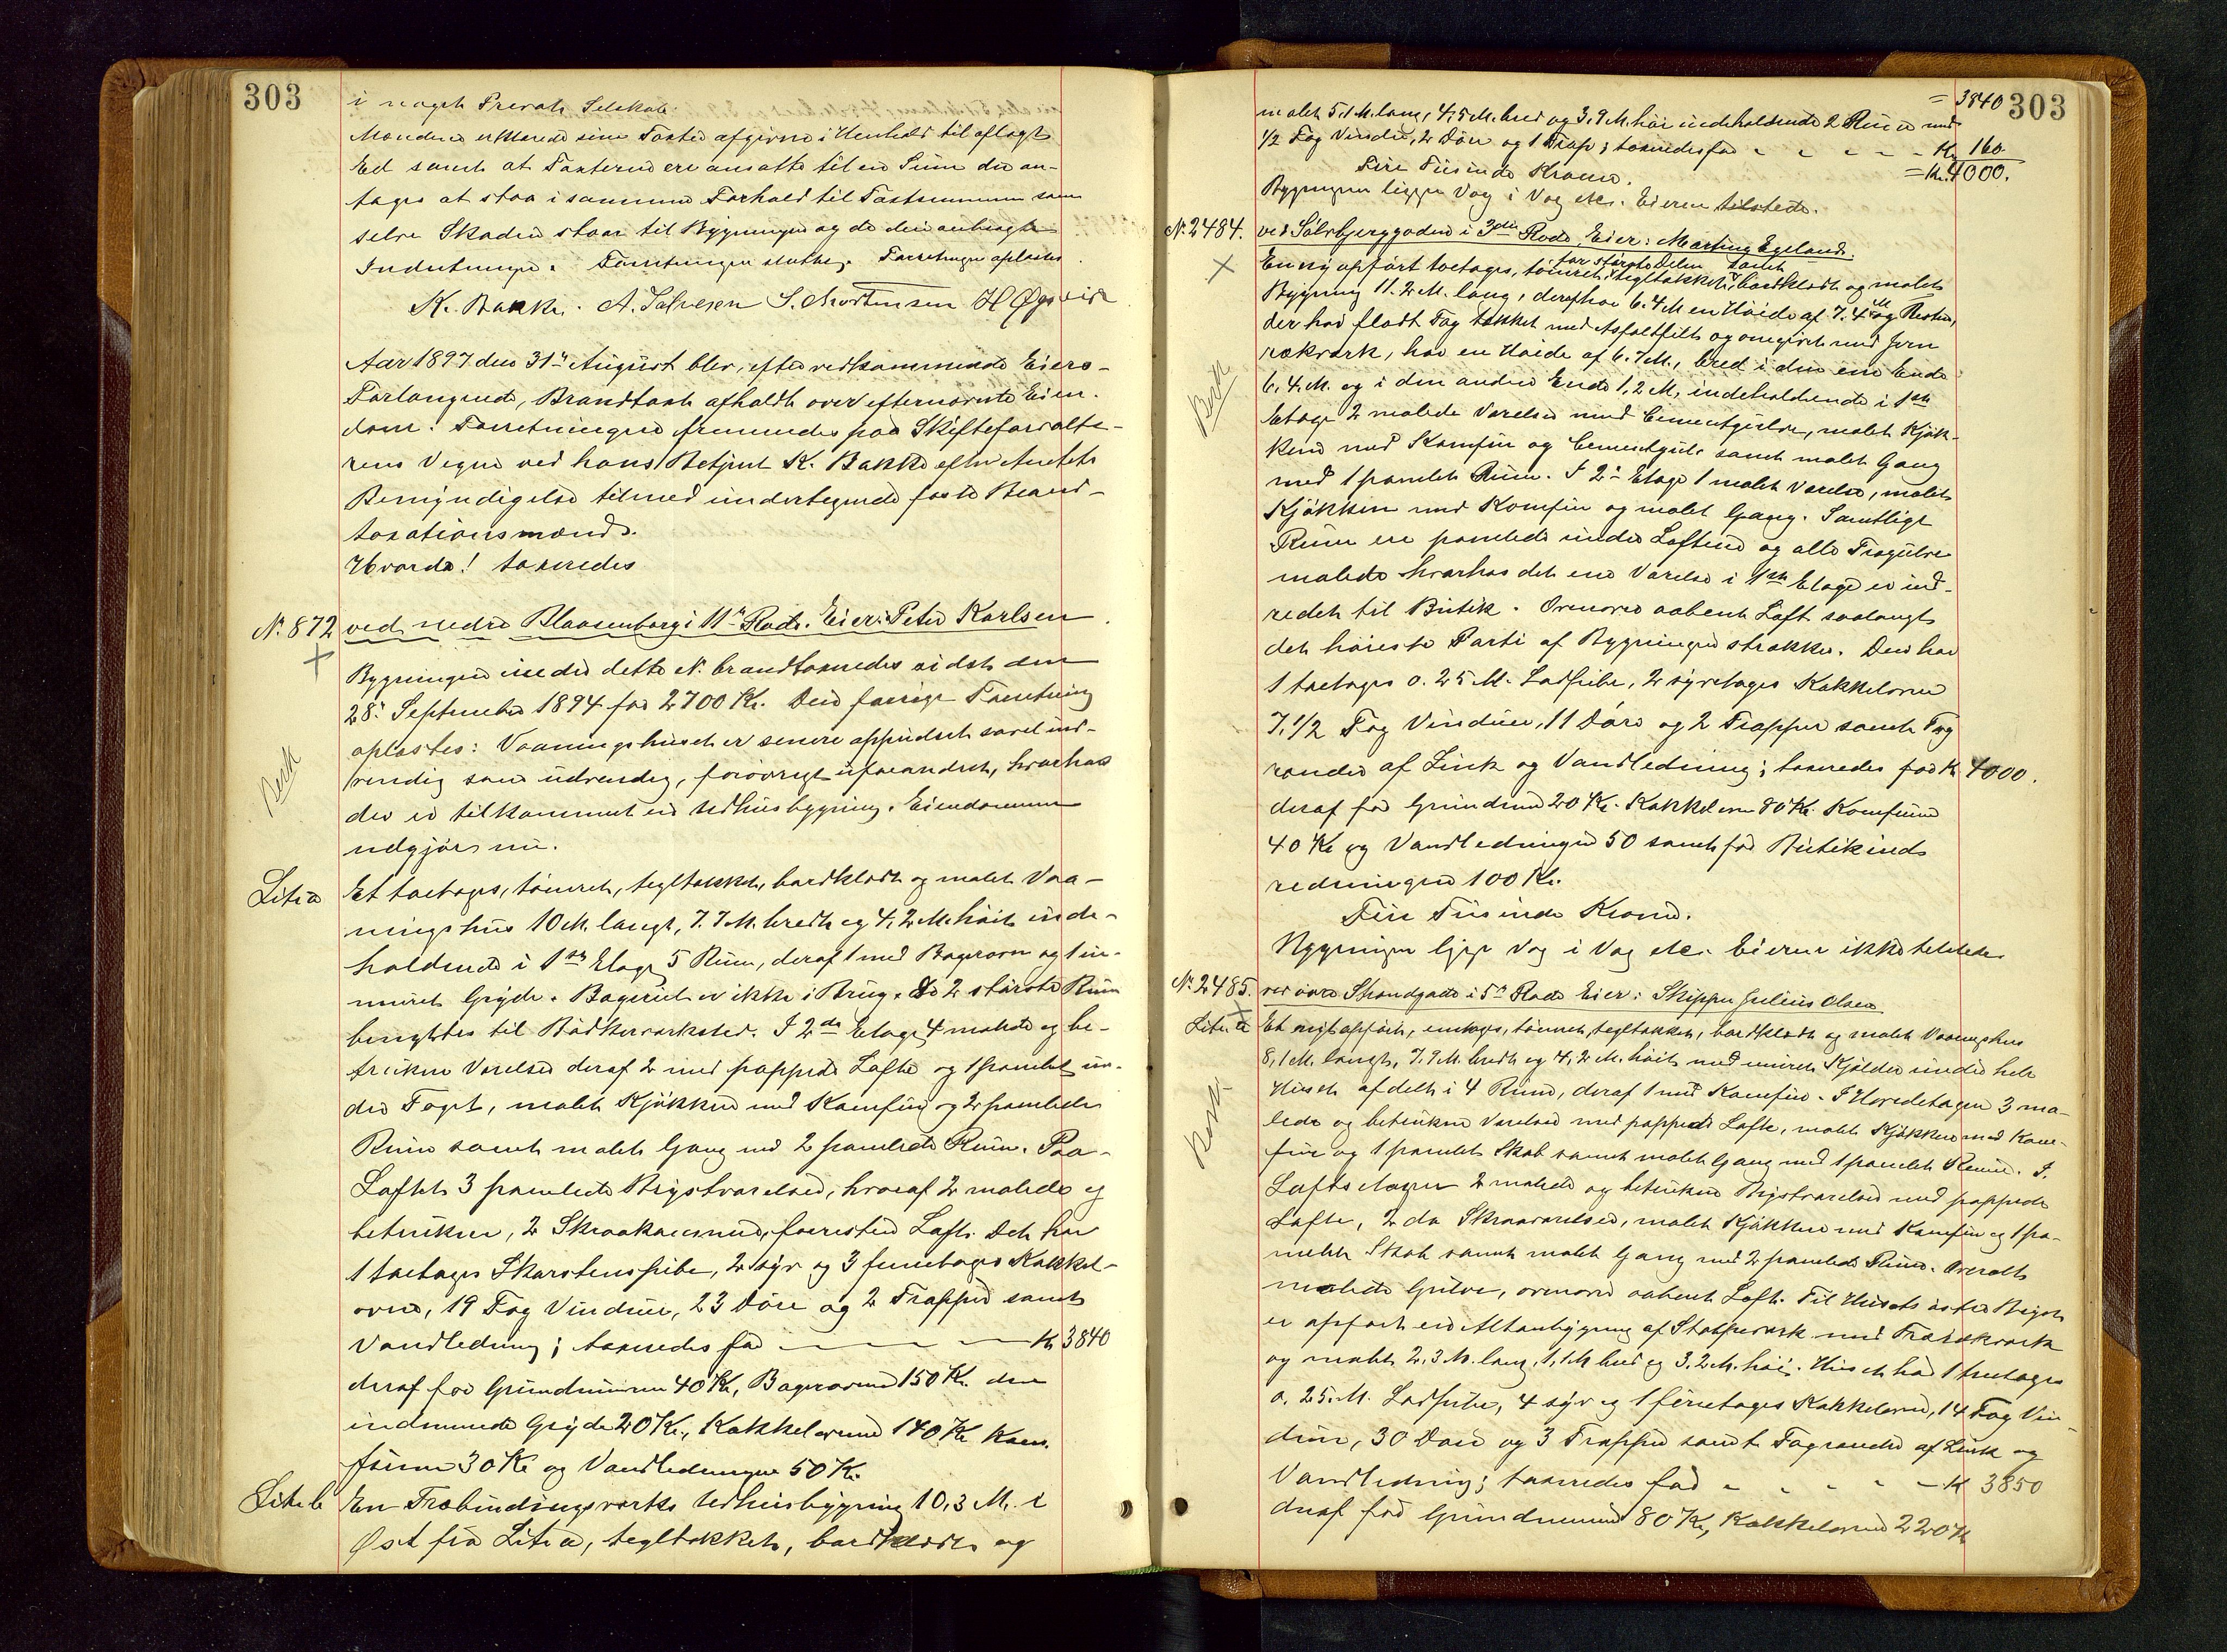 303
i noget Privat Selskab.
Mændene erklærede sine Taxter afgivne i Henhold til aflagt
Ed samt at Taxterne ere ansatte til en Sum der an-
tages at staa i samme Forhold til Taxtsummen som
selve Skaden staar til Bygningen og de deri anbragte
Indretninger. Forretningen sluttet. Forretningen oplæstes
K. Bakke. A. Salvesen S. Mortensen
Aar 1897 den 31te August blev, efter vedkommende Eiers
Forlangende, Brandtaxt afholdt over efternævnte Eien-
dom. Forretningen fremmedes paa Skifteforvalte-
rens Vegne ved hans Betjent K. Bakke efter Amtets
Bemyndigelse tilmed undertegnede faste Brand-
taxationsmænd.
Hvorda! taxeredes
No. 872 ved nedre Blaasenborg i 11te Rode. Eier: Peter Karlsen
Bygningen under dette No. brandtaxeredes sidst den
28. September 1894 for 2700 Kr. Den forrige Forretning
oplæstes: Vaaningshuset er senere oppudset saavel ind-
vendig som udvendig, forøvrigt uforandret, hvorhos
der er tilkommet en Udhusbygning. Eiendommen
udgjør nu.
Besk
Litra a Et toetages, tømret, tegltækket, bordklædt og malet Vaa-
ningshus 10 M. langt, 7.7 M. bredt og 4,2 M. høit inde-
holdende i 1ste Etage 5 Rum, deraf 1 med Bagerovn og 1 in-
muret Gryde. Bageriet er ikke i Brug. De 2 største Rum
benyttes til Bødkerværksted. I 2den Etage 4 malede og be-
trukne Værelser deraf 2 med pappede Lofte og 1 panelet un-
der Taget, malet Kjøkken med Komfur og 2 panelede
Rum samt malet Gang med 2 panelede Rum. Paa
Loftet 3 panelede Kvistværelser, hvoraf 2 malede og
betrukne, 2 Skraakammer, forresten Loft. Det har
1 toetages Skorstenspibe, 2 syv og 3 femetages Kakkel-
ovne, 19 Fag Vinduer, 23 Døre og 2 Trapper samt
Vandledning; taxeredes for — — — Kr 3840
deraf for Grundmuren 40 Kr, Bagerovnen 150 Kr. den
indmurede Gryde 20 Kr., Kakkelovnene 140 Kr Kom-
furene 30 Kr og Vandledningen 50 Kr.
Litr b En Træbindingsværks Udhusbygning 10,3 M. i
Øst fra Litr a, tegltækket, bordklædt og
303
= 3840
malet 5,1 M. lang, 4,5 M. bred og 3,9 M. høi indeholdende 2 Rum med
1/2 Fag Vindue, 2 Døre og 1 Trap; taxeredes for - - - - - Kr 160
= Kr. 4000.
Fire Tusinde Kroner.
Bygningen ligger Væg i Væg etc. Eieren tilstede.
No. 2484. ved Sølvbjerggaden i 3die Rode, Eier: Martin Egeland.
for største Delen samt
En ny opført toetages, tømret, tegltækket, bordklædt og malet
Bygning 11.2 M. lang, deraf har 6.4 M en Høide af 7.4 M og Resten,
der har fladt Tag tækket med Asfaltfilt og omgivet med Jern
rækværk, har en Høide af 6.7 M., bred i den ene Ende
6.4 M. og i den anden Ende 1,2 M, indeholdende i 1ste
Besk
Etage 2 malede Værelser med Cementgulve, malet Kjøk-
ken med Komfur og Cementgulv samt malet Gang
med 1 panelet Rum. I 2den Etage 1 malet Værelse, malet
Kjøkken med Komfur og malet Gang. Samtlige
Rum ere panelede under Loftene og alle Trægulve
malede hvorhos det ene Værelse i 1ste Etage er ind-
redet til Butik. Ovenover aabent Loft saalangt
det høieste Parti af Bygningen strækker. Den har
1 toetages 0.25 M. Lodpibe, 2 syvetages Kakkelovne
7 1/2 Fag Vinduer, 11 Døre og 2 Trapper samt Tag
render af Zink og Vandledning; taxeredes for Kr 4000.
deraf for Grundmuren 20 Kr. Kakkelovnene 80 Kr. Komfurene
40 Kr og Vandledningen 50 samt for Butikind-
redningen 100 Kr.
Fire Tusinde Kroner.
Bygningen ligger Væg i Væg etc. Eieren ikke tilstede
No. 2485. ved øvre Strandgade i 5te Rode Eier: Skipper Julius Olsen
Litr a Et nyt opført, enetages, tømret, tegltækket, bordklædt og malet Vaaningshus
8,1 M. langt, 7,9 M. bredt og 4,2 M. høit med muret Kjælder under hele
Huset afdelt i 4 Rum, deraf 1 med Komfur. I Hovedetagen 3 ma-
Besk
lede og betrukne Værelser med pappede Lofte, malet Kjøkken med Kom-
fur og 1 panelet Skab samt malet Gang med 1 panelet Rum. I
Loftsetagen 2 malede og betrukne Kvistværelser med pappede
Lofte, 2 do Skraaværelser, malet Kjøkken med Komfur og 1 pa-
nelet Skab samt malet Gang med 2 panelede Rum. Overalt
malede Gulve, ovenover aabent Loft. Til Husets østre Kvist
er opført en Altanbygning af Stolpeværk med Trærækværk
og malet 2,3 M. lang, 1,1 M bred og 3.2 M. høi. Huset har 1 treetages
0.25 M. Lodpibe, 4 syv og 1 fireetages Kakkelovne, 14 Fag Vin-
duer, 30 Døre og 3 Trapper samt Tagrender af Zink og
Vandledning; taxeredes for - - - - - Kr 3850
deraf for Grundmuren 80 Kr, Kakkelovnene 220 Kr